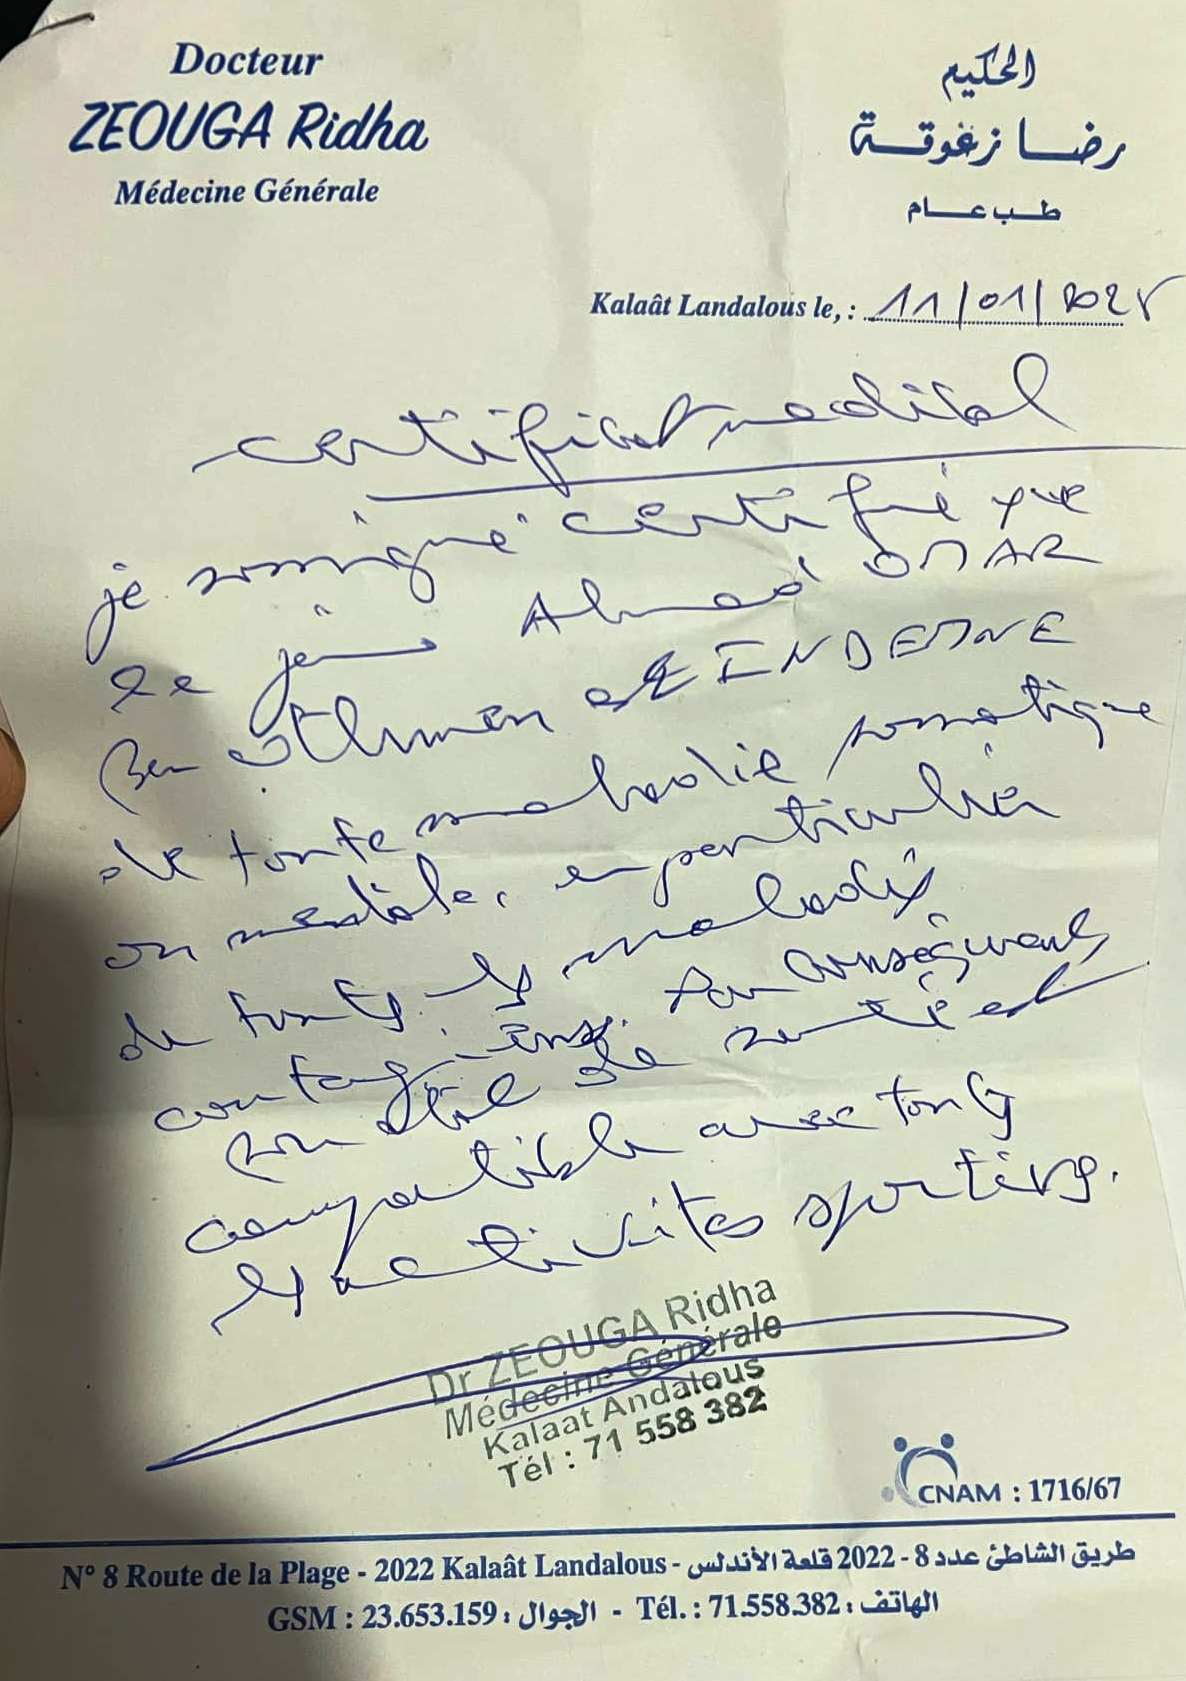 Docteur
ZEOUGA Ridha
Médecine Générale
الحكيم
رضا زغوقة
طب عام
Kalaât Landalous le, : 11/01/2025
certificat medical
je soussigné certifié que
le jeune Ahmed OMAR
Ben Othmen est INDEMNE
de toute maladie somatique
ou mentale, en particulier
de toutes les maladies
contagieuses. Par conséquent
son état de santé est
compatible avec toutes
les activités sportives.
Dr ZEOUGA Ridha
Médecine Générale
Kalaat Andalous
Tél : 71 558 382
CNAM : 1716/67
N° 8 Route de la Plage - 2022 Kalaât Landalous - طريق الشاطئ عدد 8 - 2022 قلعة الأندلس
GSM : 23.653.159 : الجوال - Tél. : 71.558.382 : الهاتف